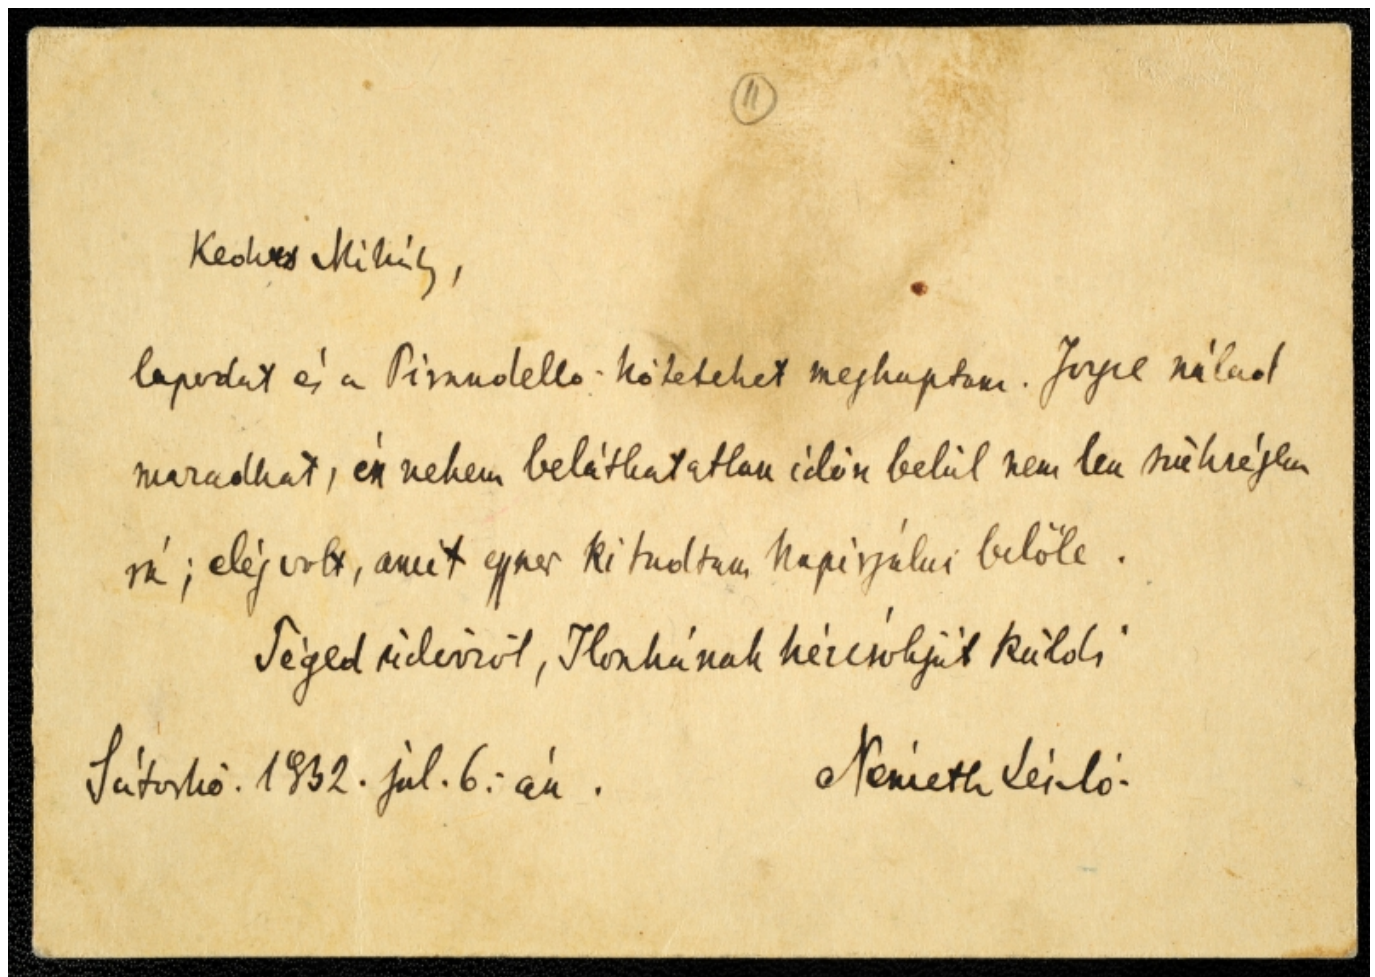 11
Kedves Mihály,
lapodat és a Pirandello-köteteket megkaptam. Joyce nálad
maradhat, én nekem beláthatatlan időn belül nem len szükségem
rá; elég volt, amit egyszer ki tudtam kapirgálni belőle.
Téged üdvözöl, Ilonkának kézcsókját küldi
Sátorkő. 1932. júl. 6.-án.
Németh László.